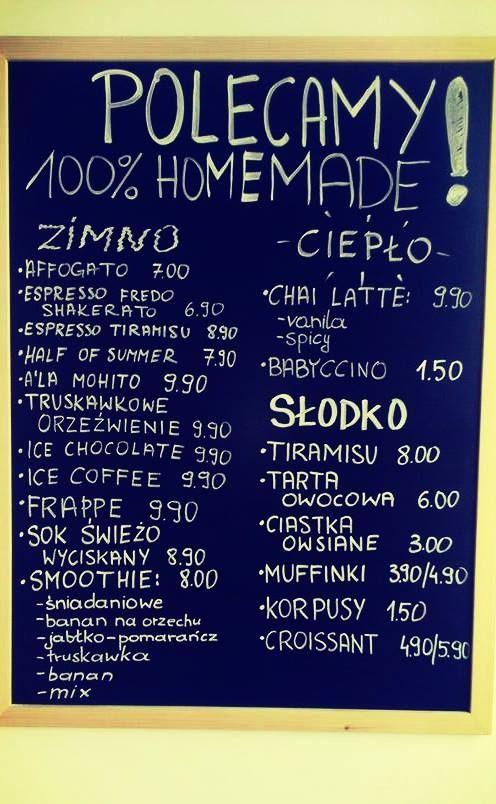 POLECAMY!
100% HOMEMADE
ZIMNO
•AFFOGATO 7.00
•ESPRESSO FREDO
SHAKERATO 6.90
•ESPRESSO TIRAMISU 8.90
•HALF OF SUMMER 7.90
•A'LA MOHITO 9.90
•TRUSKAWKOWE
ORZEŹWIENIE 9.90
•ICE CHOCOLATE 9.90
•ICE COFFEE 9.90
•FRAPPE 9.90
•SOK ŚWIEŻO
WYCISKANY 8.90
•SMOOTHIE: 8.00
-śniadaniowe
-banan na orzechu
-jabłko-pomarańcz
-truskawka
-banan
-mix
-CIEPŁO-
•CHAI LATTÈ: 9.90
-vanila
-spicy
•BABYCCINO 1.50
SŁODKO
•TIRAMISU 8.00
•TARTA
OWOCOWA 6.00
•CIASTKA
OWSIANE 3.00
•MUFFINKI 3.90/4.90
•KORPUSY 1.50
•CROISSANT 4.90/5.90